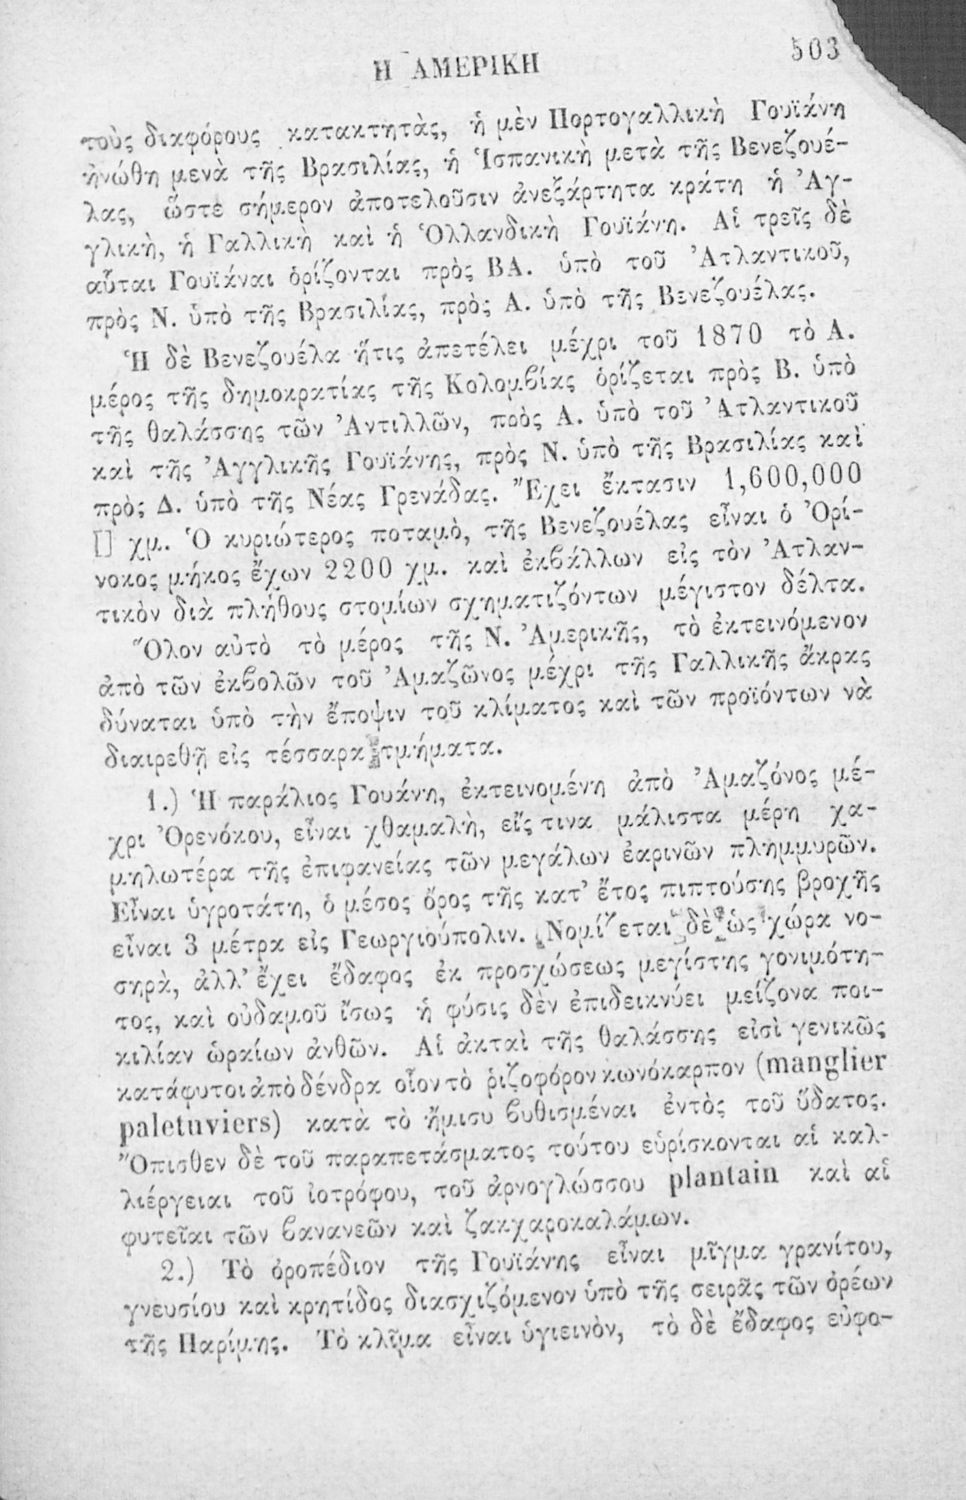 Η ΑΜΕΡΙΚΗ 503
τοὺς διαφόρους κατακτητὰς, ἡ μὲν Πορτογαλλικὴ Γουϊάνη
ἡνώθη μενὰ τῆς Βρασιλίας, ἡ Ἱσπανικὴ μετὰ τῆς Βενεζουέ-
λας, ὥστε σήμερον ἀποτελοῦσιν ἀνεξάρτητα κράτη ἡ Ἀγ-
γλικὴ, ἡ Γαλλικὴ καὶ ἡ Ὁλλανδικὴ Γουϊάνη. Αἱ τρεῖς δὲ
αὗται Γουϊάναι ὁρίζονται πρὸς ΒΑ. ὑπὸ τοῦ Ἀτλαντικοῦ,
πρὸς Ν. ὑπὸ τῆς Βρασιλίας, πρὸς Α. ὑπὸ τῆς Βενεζουέλας.
Ἡ δὲ Βενεζουέλα ἥτις ἀπετέλει μέχρι τοῦ 1870 τὸ Α.
μέρος τῆς δημοκρατίας τῆς Κολομβίας ὁρίζεται πρὸς Β. ὑπὸ
τῆς θαλάσσης τῶν Ἀντιλλῶν, πρὸς Α. ὑπὸ τοῦ Ἀτλαντικοῦ
καὶ τῆς Ἀγγλικῆς Γουϊάνης, πρὸς Ν. ὑπὸ τῆς Βρασιλίας καὶ
πρὸς Δ. ὑπὸ τῆς Νέας Γρενάδας. Ἔχει ἔκτασιν 1,600,000
[] χμ. Ὁ κυριώτερος ποταμὸ, τῆς Βενεζουέλας εἶναι ὁ Ὀρί-
νοκος μῆκος ἔχων 2200 χμ. καὶ ἐκβάλλων εἰς τὸν Ἀτλαν-
τικὸν διὰ πλήθους στομίων σχηματιζόντων μέγιστον δέλτα.
Ὅλον αὐτὸ τὸ μέρος τῆς Ν. Ἀμερικῆς, τὸ ἐκτεινόμενον
ἀπὸ τῶν ἐκβολῶν τοῦ Ἀμαζῶνος μέχρι τῆς Γαλλικῆς ἄκρας
δύναται ὑπὸ τὴν ἔποψιν τοῦ κλίματος καὶ τῶν προϊόντων νὰ
διαιρεθῇ εἰς τέσσαρα τμήματα.
1.) Ἡ παράλιος Γουάνη, ἐκτεινομένη ἀπὸ Ἀμαζόνος μέ-
χρι Ὀρενόκου, εἶναι χθαμαλὴ, εἴς τινα μάλιστα μέρη χα-
μηλωτέρα τῆς ἐπιφανείας τῶν μεγάλων ἐαρινῶν πλημμυρῶν.
Εἶναι ὑγροτάτη, ὁ μέσος ὅρος τῆς κατ' ἔτος πιπτούσης βροχῆς
εἶναι 3 μέτρα εἰς Γεωργιούπολιν. Νομίζεται δὲ ὡς χώρα νο-
σηρὰ, ἀλλ' ἔχει ἔδαφος ἐκ προσχώσεως μεγίστης γονιμότη-
τος, καὶ οὐδαμοῦ ἴσως ἡ φύσις δὲν ἐπιδεικνύει μείζονα ποι-
κιλίαν ὡραίων ἀνθῶν. Αἱ ἀκταὶ τῆς θαλάσσης εἰσὶ γενικῶς
κατάφυτοι ἀπὸ δένδρα οἷον τὸ ῥιζοφόρον κωνόκαρπον (manglier
paletuviers) κατὰ τὸ ἥμισυ βυθισμέναι ἐντὸς τοῦ ὕδατος.
Ὄπισθεν δὲ τοῦ παραπετάσματος τούτου εὑρίσκονται αἱ καλ-
λιέργειαι τοῦ ἰοτρόφου, τοῦ ἀρνογλώσσου plantain καὶ αἱ
φυτεῖαι τῶν βανανεῶν καὶ ζακχαροκαλάμων.
2.) Τὸ ὀροπέδιον τῆς Γουϊάνης εἶναι μῖγμα γρανίτου,
γνευσίου καὶ κρητίδος διασχιζόμενον ὑπὸ τῆς σειρᾶς τῶν ὀρέων
τῆς Παρίμης. Τὸ κλῖμα εἶναι ὑγιεινὸν, τὸ δὲ ἔδαφος εὐφο-